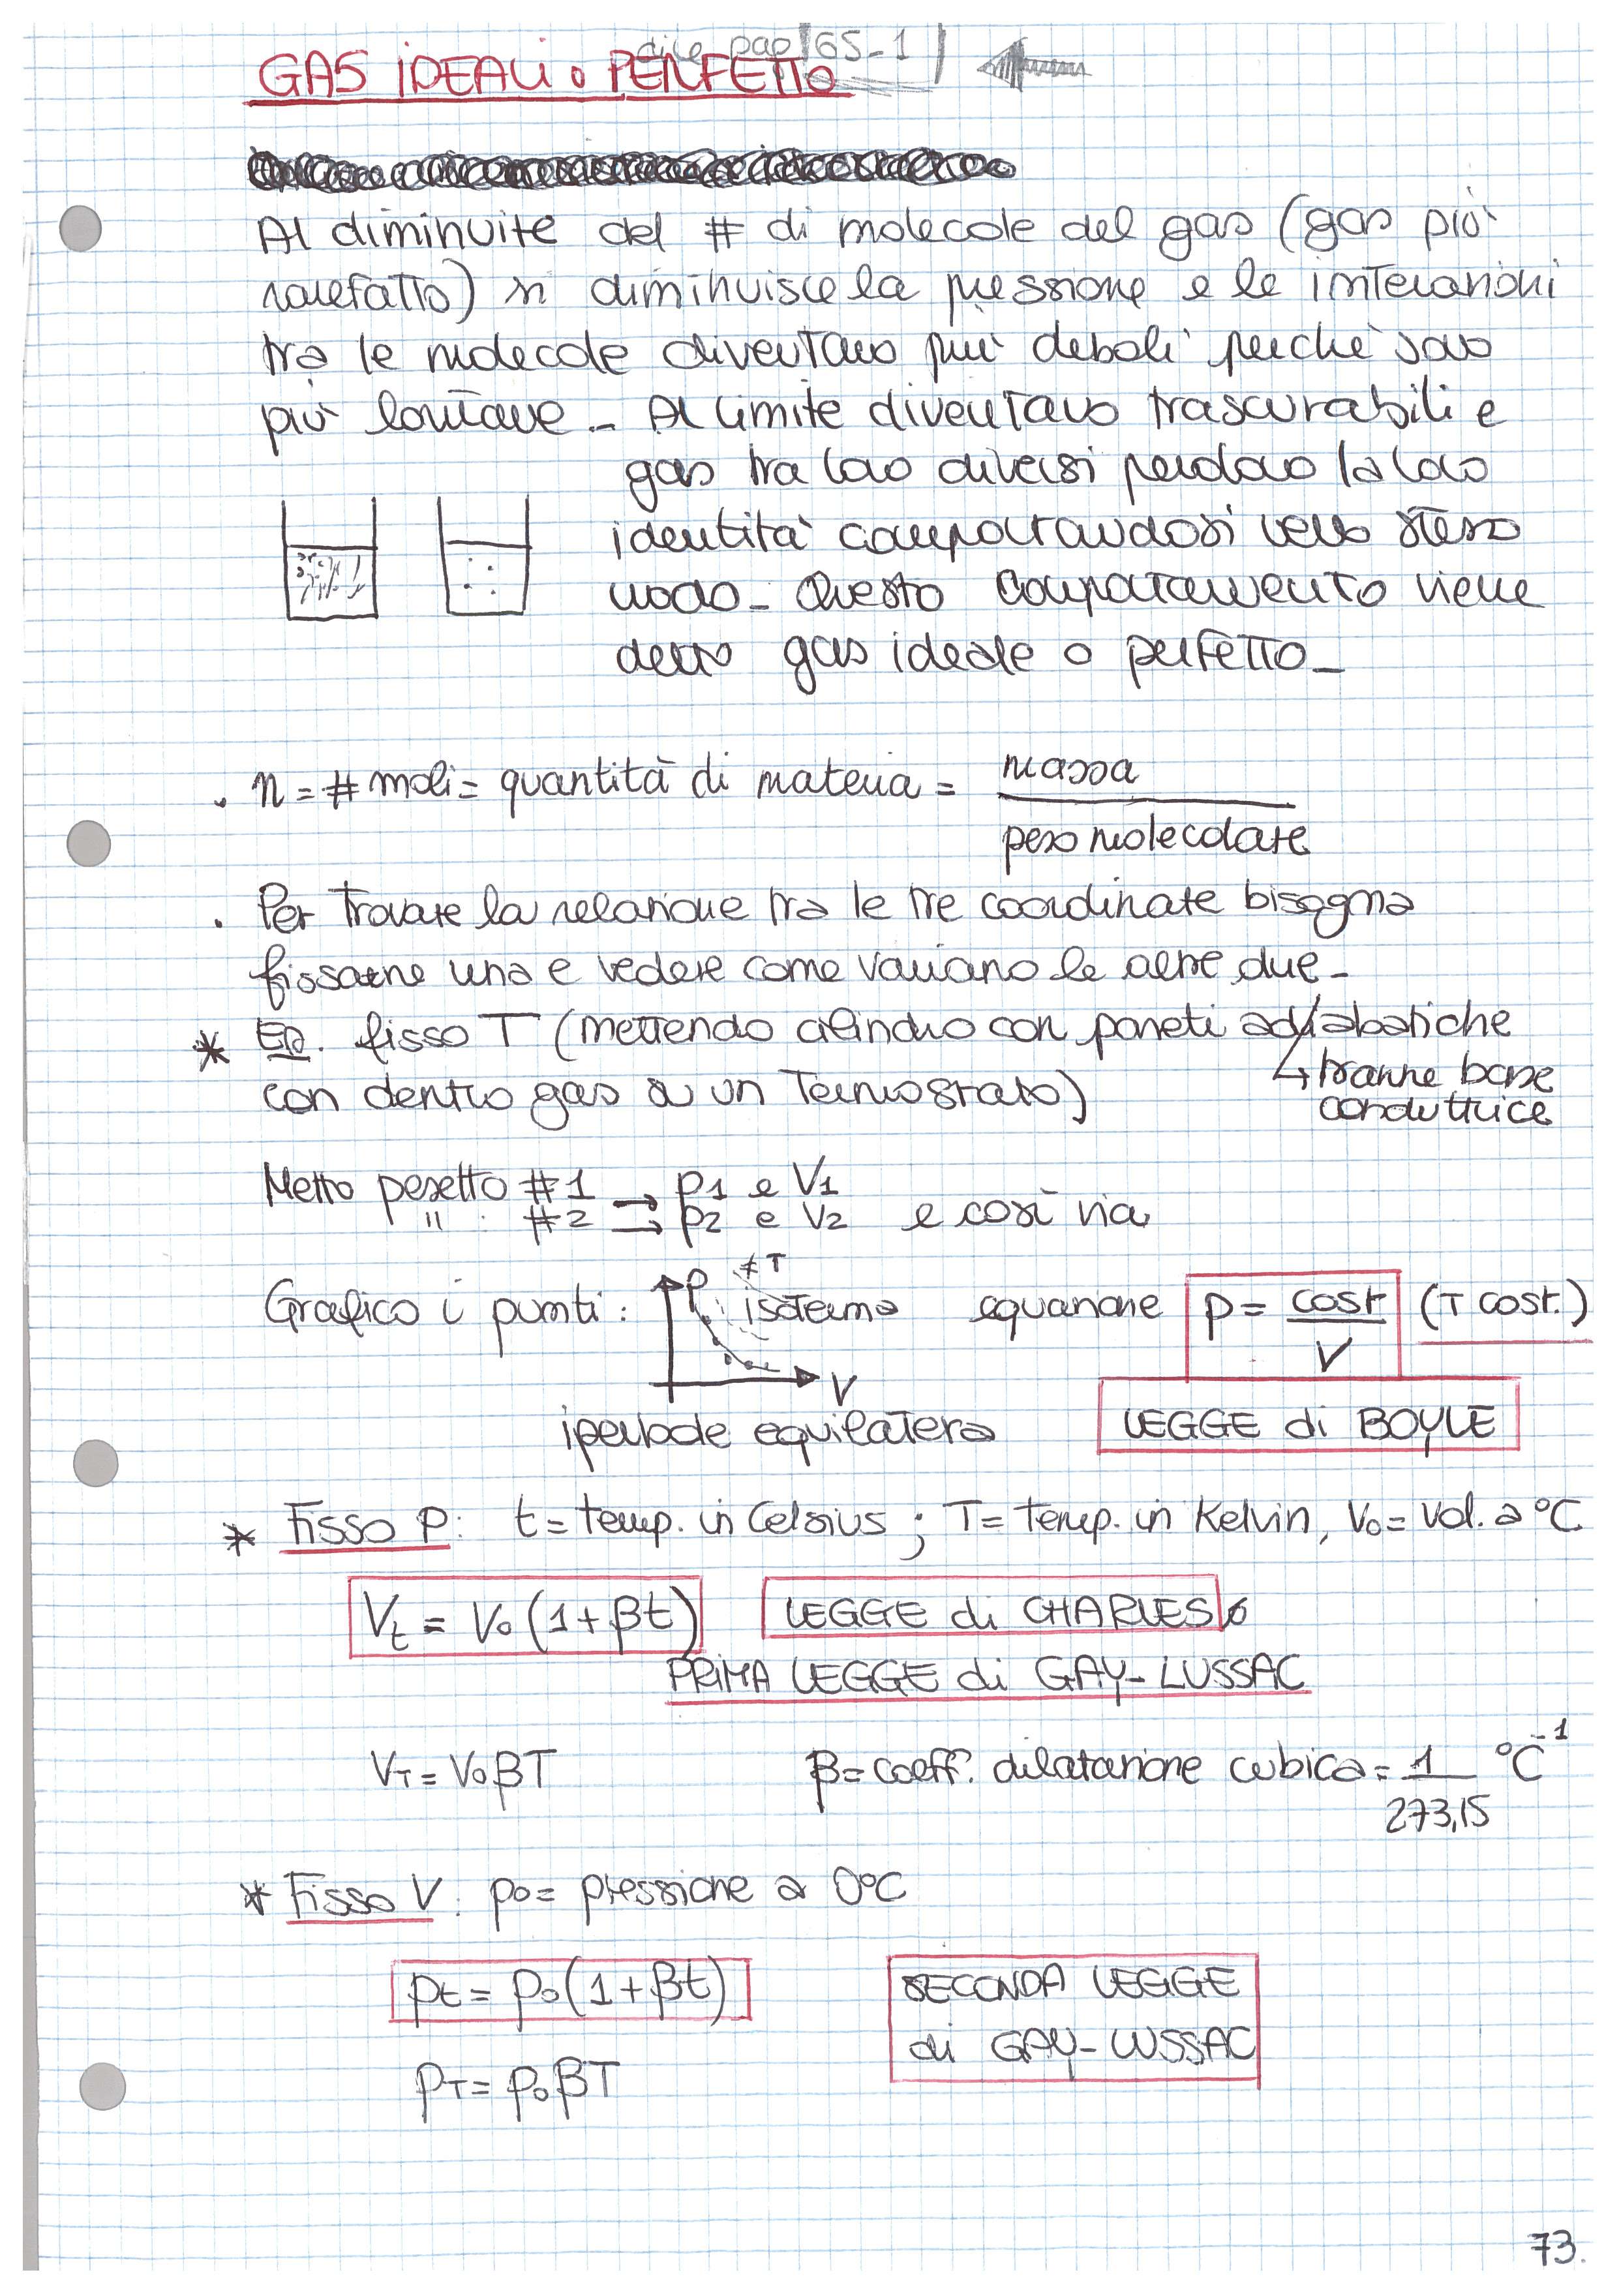 dice pag 65-1
GAS IDEALI o PERFETTO
Al diminuire del # di molecole del gas (gas più
rarefatto) si diminuisce la pressione e le interazioni
tra le molecole diventano più deboli perchè sono
più lontane _ Al limite diventano trascurabili e
gas tra loro diversi perdono la loro
identità comportandosi nello stesso
modo _ Questo comportamento viene
detto gas ideale o perfetto _
. n = # moli = quantità di materia = massa
peso molecolare
. Per trovare la relazione tra le tre coordinate bisogna
fissarne una e vedere come variano le altre due _
* Es. fisso T (mettendo cilindro con pareti adiabatiche
↳ tranne base
con dentro gas a un Termostato)
conduttrice
Metto pesetto #1 → p1 e V1
" : #2 → p2 e V2 e così via
≠ T
Grafico i punti: P isoterma equazione p = cost (T cost.)
V
V
iperbole equilatera LEGGE di BOYLE
* Fisso P: t = temp. in Celsius ; T = Temp. in Kelvin, V₀ = Vol. a °C
Vt = V₀ (1 + βt) LEGGE di CHARLES o
PRIMA LEGGE di GAY-LUSSAC
VT = V₀βT β = coeff. dilatazione cubica = 1 °C⁻¹
273,15
* Fisso V : p₀ = pressione a 0°C
pt = p₀ (1 + βt) SECONDA LEGGE
di GAY-LUSSAC
pT = p₀βT
73.